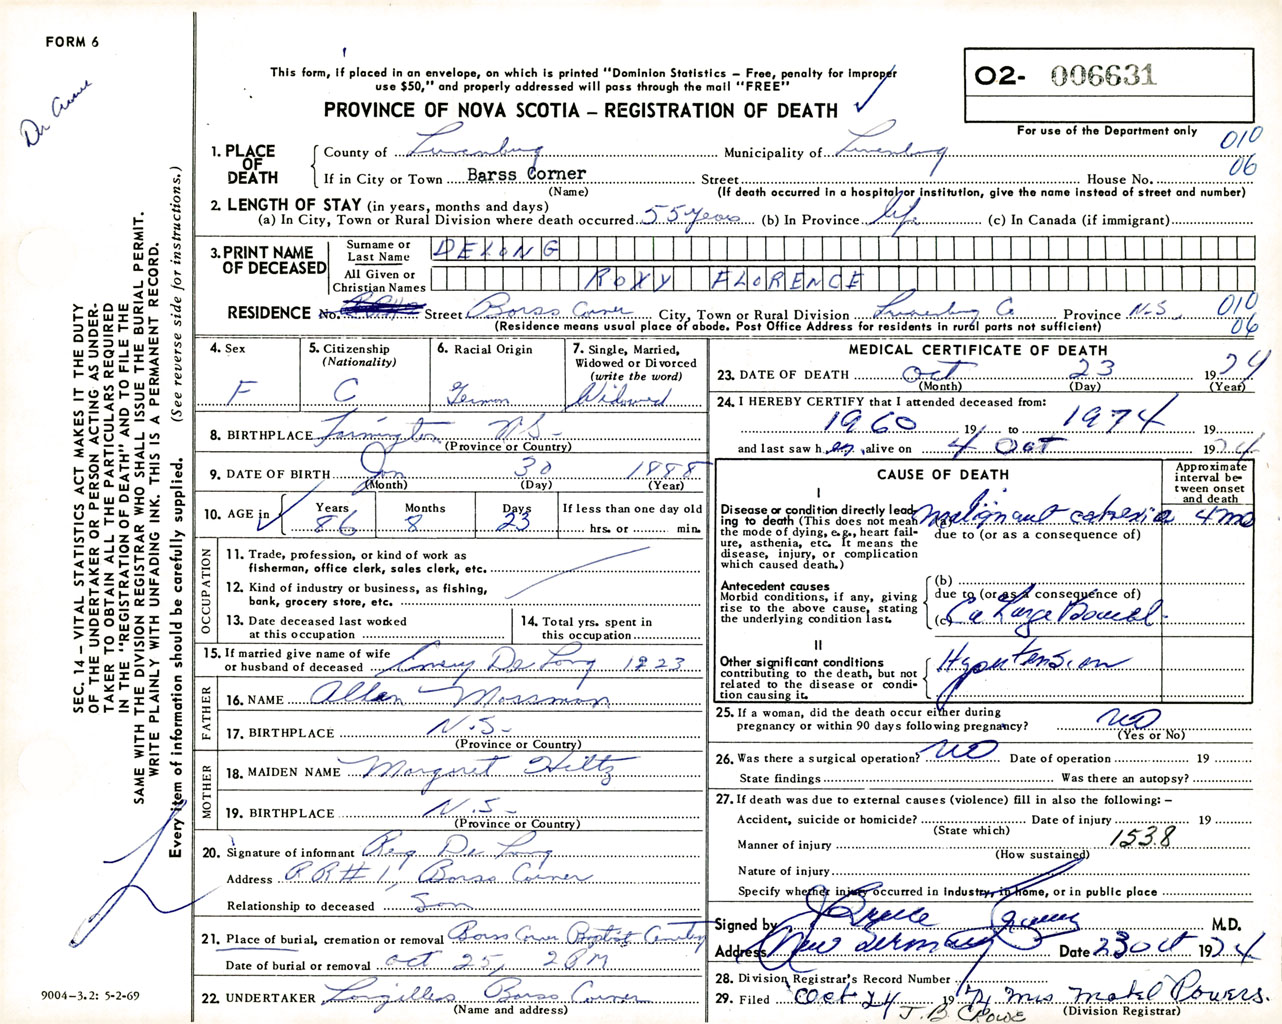 FORM 6
Dr Crowe
This form, if placed in an envelope, on which is printed "Dominion Statistics – Free, penalty for improper
use $50," and properly addressed will pass through the mail "FREE"
PROVINCE OF NOVA SCOTIA – REGISTRATION OF DEATH
O2- 006631
For use of the Department only
010
06
1. PLACE OF DEATH
County of Lunenburg Municipality of Lunenburg
If in City or Town Barss Corner Street House No.
(Name) (If death occurred in a hospital or institution, give the name instead of street and number)
2. LENGTH OF STAY (in years, months and days)
(a) In City, Town or Rural Division where death occurred 55 years (b) In Province life (c) In Canada (if immigrant)
3. PRINT NAME OF DECEASED
Surname or Last Name DELONG
All Given or Christian Names ROXY FLORENCE
RESIDENCE No. Street Barss Corner City, Town or Rural Division Lunenburg Co Province N.S. 010
(Residence means usual place of abode. Post Office Address for residents in rural parts not sufficient) 06
4. Sex
F
5. Citizenship
(Nationality)
C
6. Racial Origin
German
7. Single, Married,
Widowed or Divorced
(write the word)
Widowed
8. BIRTHPLACE Farmington N.S.
(Province or Country)
9. DATE OF BIRTH Jan 30 1888
(Month) (Day) (Year)
10. AGE in
Years Months Days If less than one day old
86 8 23 hrs. or min.
OCCUPATION
11. Trade, profession, or kind of work as
fisherman, office clerk, sales clerk, etc.
12. Kind of industry or business, as fishing,
bank, grocery store, etc.
13. Date deceased last worked
at this occupation
14. Total yrs. spent in
this occupation
15. If married give name of wife
or husband of deceased Emery De Long 1223
FATHER
16. NAME Allen Mossman
17. BIRTHPLACE N.S.
(Province or Country)
MOTHER
18. MAIDEN NAME Margaret Hiltz
19. BIRTHPLACE N.S.
(Province or Country)
20. Signature of informant Reg De Long
Address RR#1, Barss Corner
Relationship to deceased Son
21. Place of burial, cremation or removal Barss Corner Baptist Cemetery
Date of burial or removal Oct 25, 2 PM
22. UNDERTAKER Barss Corner
(Name and address)
MEDICAL CERTIFICATE OF DEATH
23. DATE OF DEATH Oct 23 1974
(Month) (Day) (Year)
24. I HEREBY CERTIFY that I attended deceased from:
1960 19 to 1974 19
and last saw her alive on 4 Oct 1974
CAUSE OF DEATH
Approximate
interval be-
tween onset
and death
I
Disease or condition directly lead-
ing to death (This does not mean
the mode of dying, e.g., heart fail-
ure, asthenia, etc. It means the
disease, injury, or complication
which caused death.)
(a) Malignant cachexia 4 mo
due to (or as a consequence of)
Antecedent causes
Morbid conditions, if any, giving
rise to the above cause, stating
the underlying condition last.
(b)
due to (or as a consequence of)
(c) Ca Large Bowel
II
Other significant conditions
contributing to the death, but not
related to the disease or condi-
tion causing it.
Hypertension
25. If a woman, did the death occur either during
pregnancy or within 90 days following pregnancy? no
(Yes or No)
26. Was there a surgical operation? no Date of operation 19
State findings Was there an autopsy?
27. If death was due to external causes (violence) fill in also the following: –
Accident, suicide or homicide? Date of injury 19
(State which)
Manner of injury 153.8
(How sustained)
Nature of injury
Specify whether injury occurred in Industry, in home, or in public place
Signed by M.D.
Address New Germany Date 23 Oct 1974
28. Division Registrar's Record Number
29. Filed Oct 24 1974 Mrs Mabel Powers.
J. B. CROWE (Division Registrar)
SEC. 14 – VITAL STATISTICS ACT MAKES IT THE DUTY
OF THE UNDERTAKER OR PERSON ACTING AS UNDER-
TAKER TO OBTAIN ALL THE PARTICULARS REQUIRED
IN THE "REGISTRATION OF DEATH" AND TO FILE THE
SAME WITH THE DIVISION REGISTRAR WHO SHALL ISSUE THE BURIAL PERMIT.
WRITE PLAINLY WITH UNFADING INK. THIS IS A PERMANENT RECORD.
Every item of information should be carefully supplied. (See reverse side for instructions.)
9004-3.2: 5-2-69